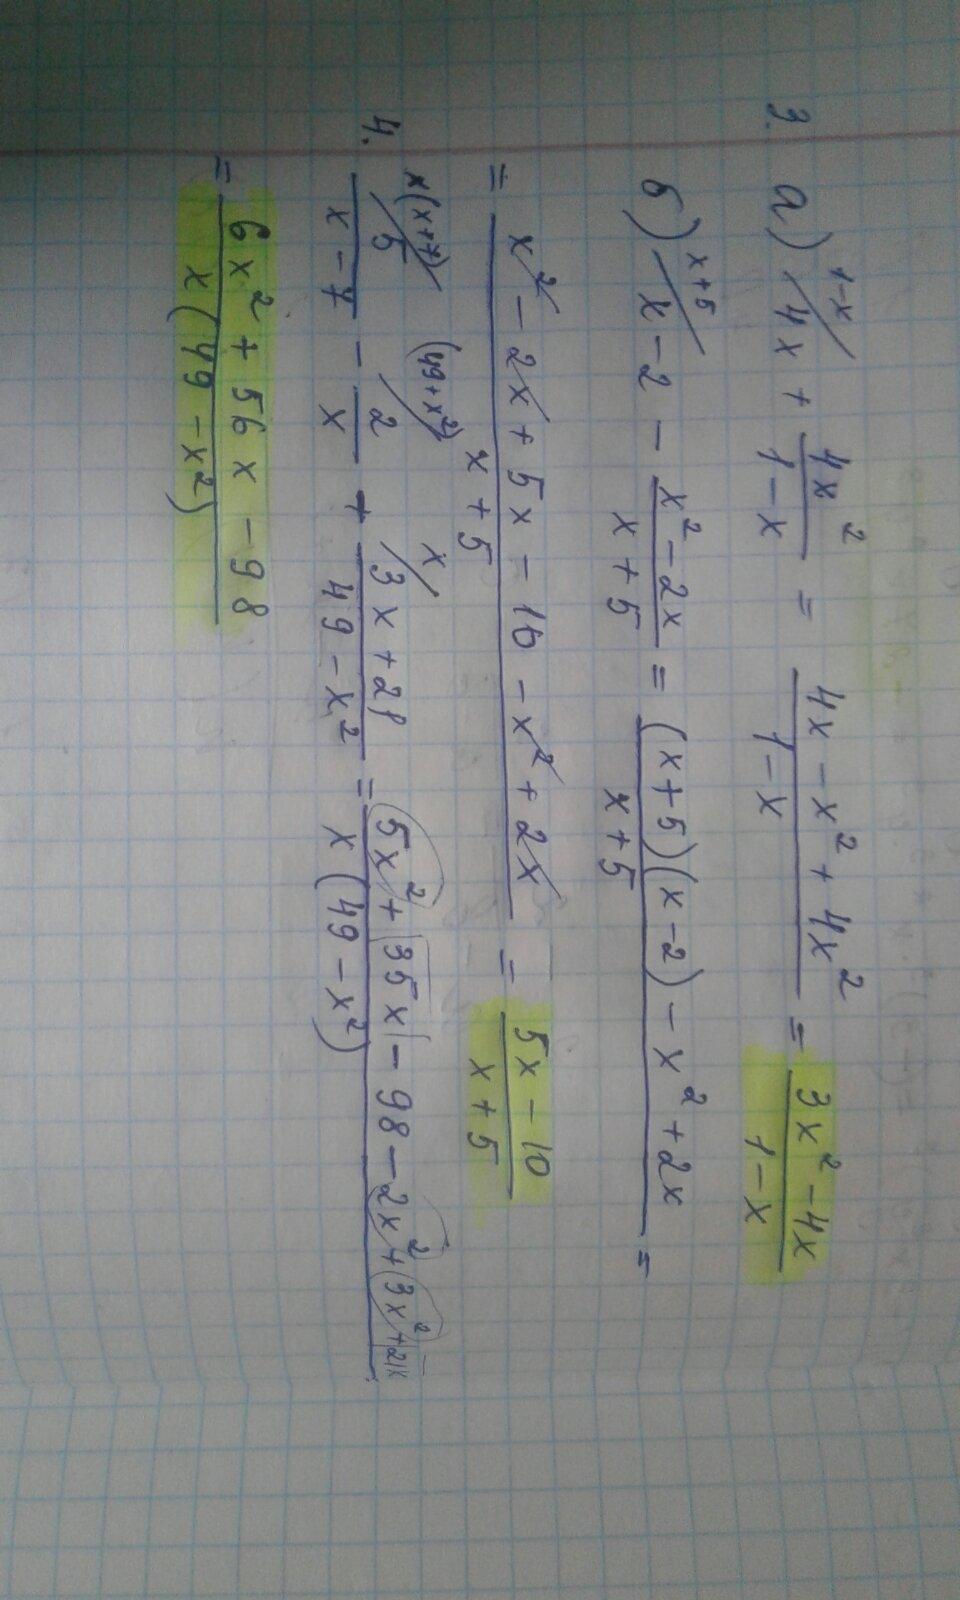 3. а) 4x^(1-x) + 4x²/(1-x) = (4x - x² + 4x²)/(1-x) = (3x² - 4x)/(1-x)
б) x-2^(x+5) - (x² - 2x)/(x+5) = ((x+5)(x-2) - x² + 2x)/(x+5) =
= (x² - 2x + 5x - 10 - x² + 2x)/(x+5) = (5x - 10)/(x+5)
4. 5^(x(x+7))/(x-7) - 2^((49+x²))/x + (3x+21)^(x)/(49-x²) = (5x² + 35x - 98 - 2x² + 3x² + 21x)/(x(49-x²))
= (6x² + 56x - 98)/(x(49-x²))